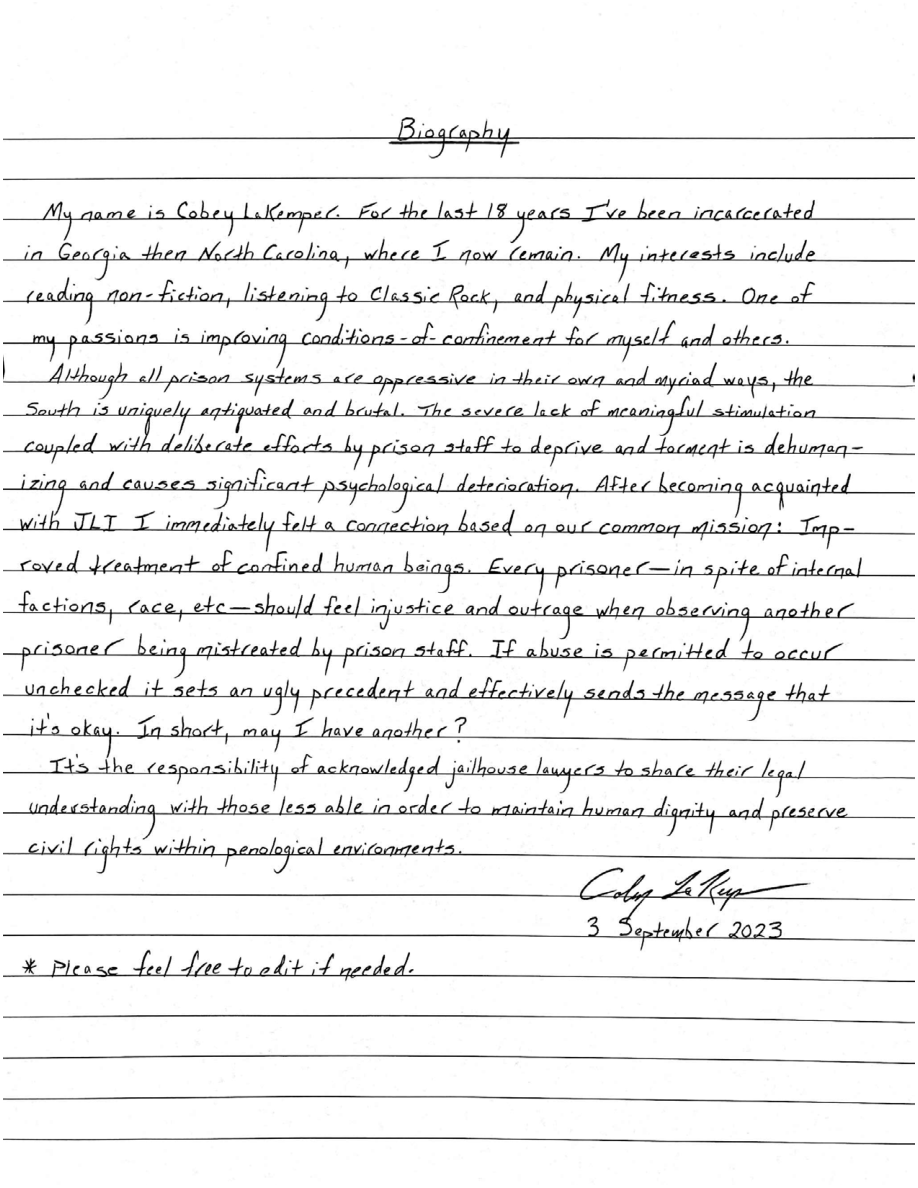 Biography
My name is Cobey LaKemper. For the last 18 years I've been incarcerated
in Georgia then North Carolina, where I now remain. My interests include
reading non-fiction, listening to Classic Rock, and physical fitness. One of
my passions is improving conditions-of-confinement for myself and others.
Although all prison systems are oppressive in their own and myriad ways, the
South is uniquely antiquated and brutal. The severe lack of meaningful stimulation
coupled with deliberate efforts by prison staff to deprive and torment is dehuman-
izing and causes significant psychological deterioration. After becoming acquainted
with JLI I immediately felt a connection based on our common mission: Imp-
roved treatment of confined human beings. Every prisoner—in spite of internal
factions, race, etc—should feel injustice and outrage when observing another
prisoner being mistreated by prison staff. If abuse is permitted to occur
unchecked it sets an ugly precedent and effectively sends the message that
it's okay. In short, may I have another?
It's the responsibility of acknowledged jailhouse lawyers to share their legal
understanding with those less able in order to maintain human dignity and preserve
civil rights within penological environments.
Cobey LaKemper
3 September 2023
* Please feel free to edit if needed.